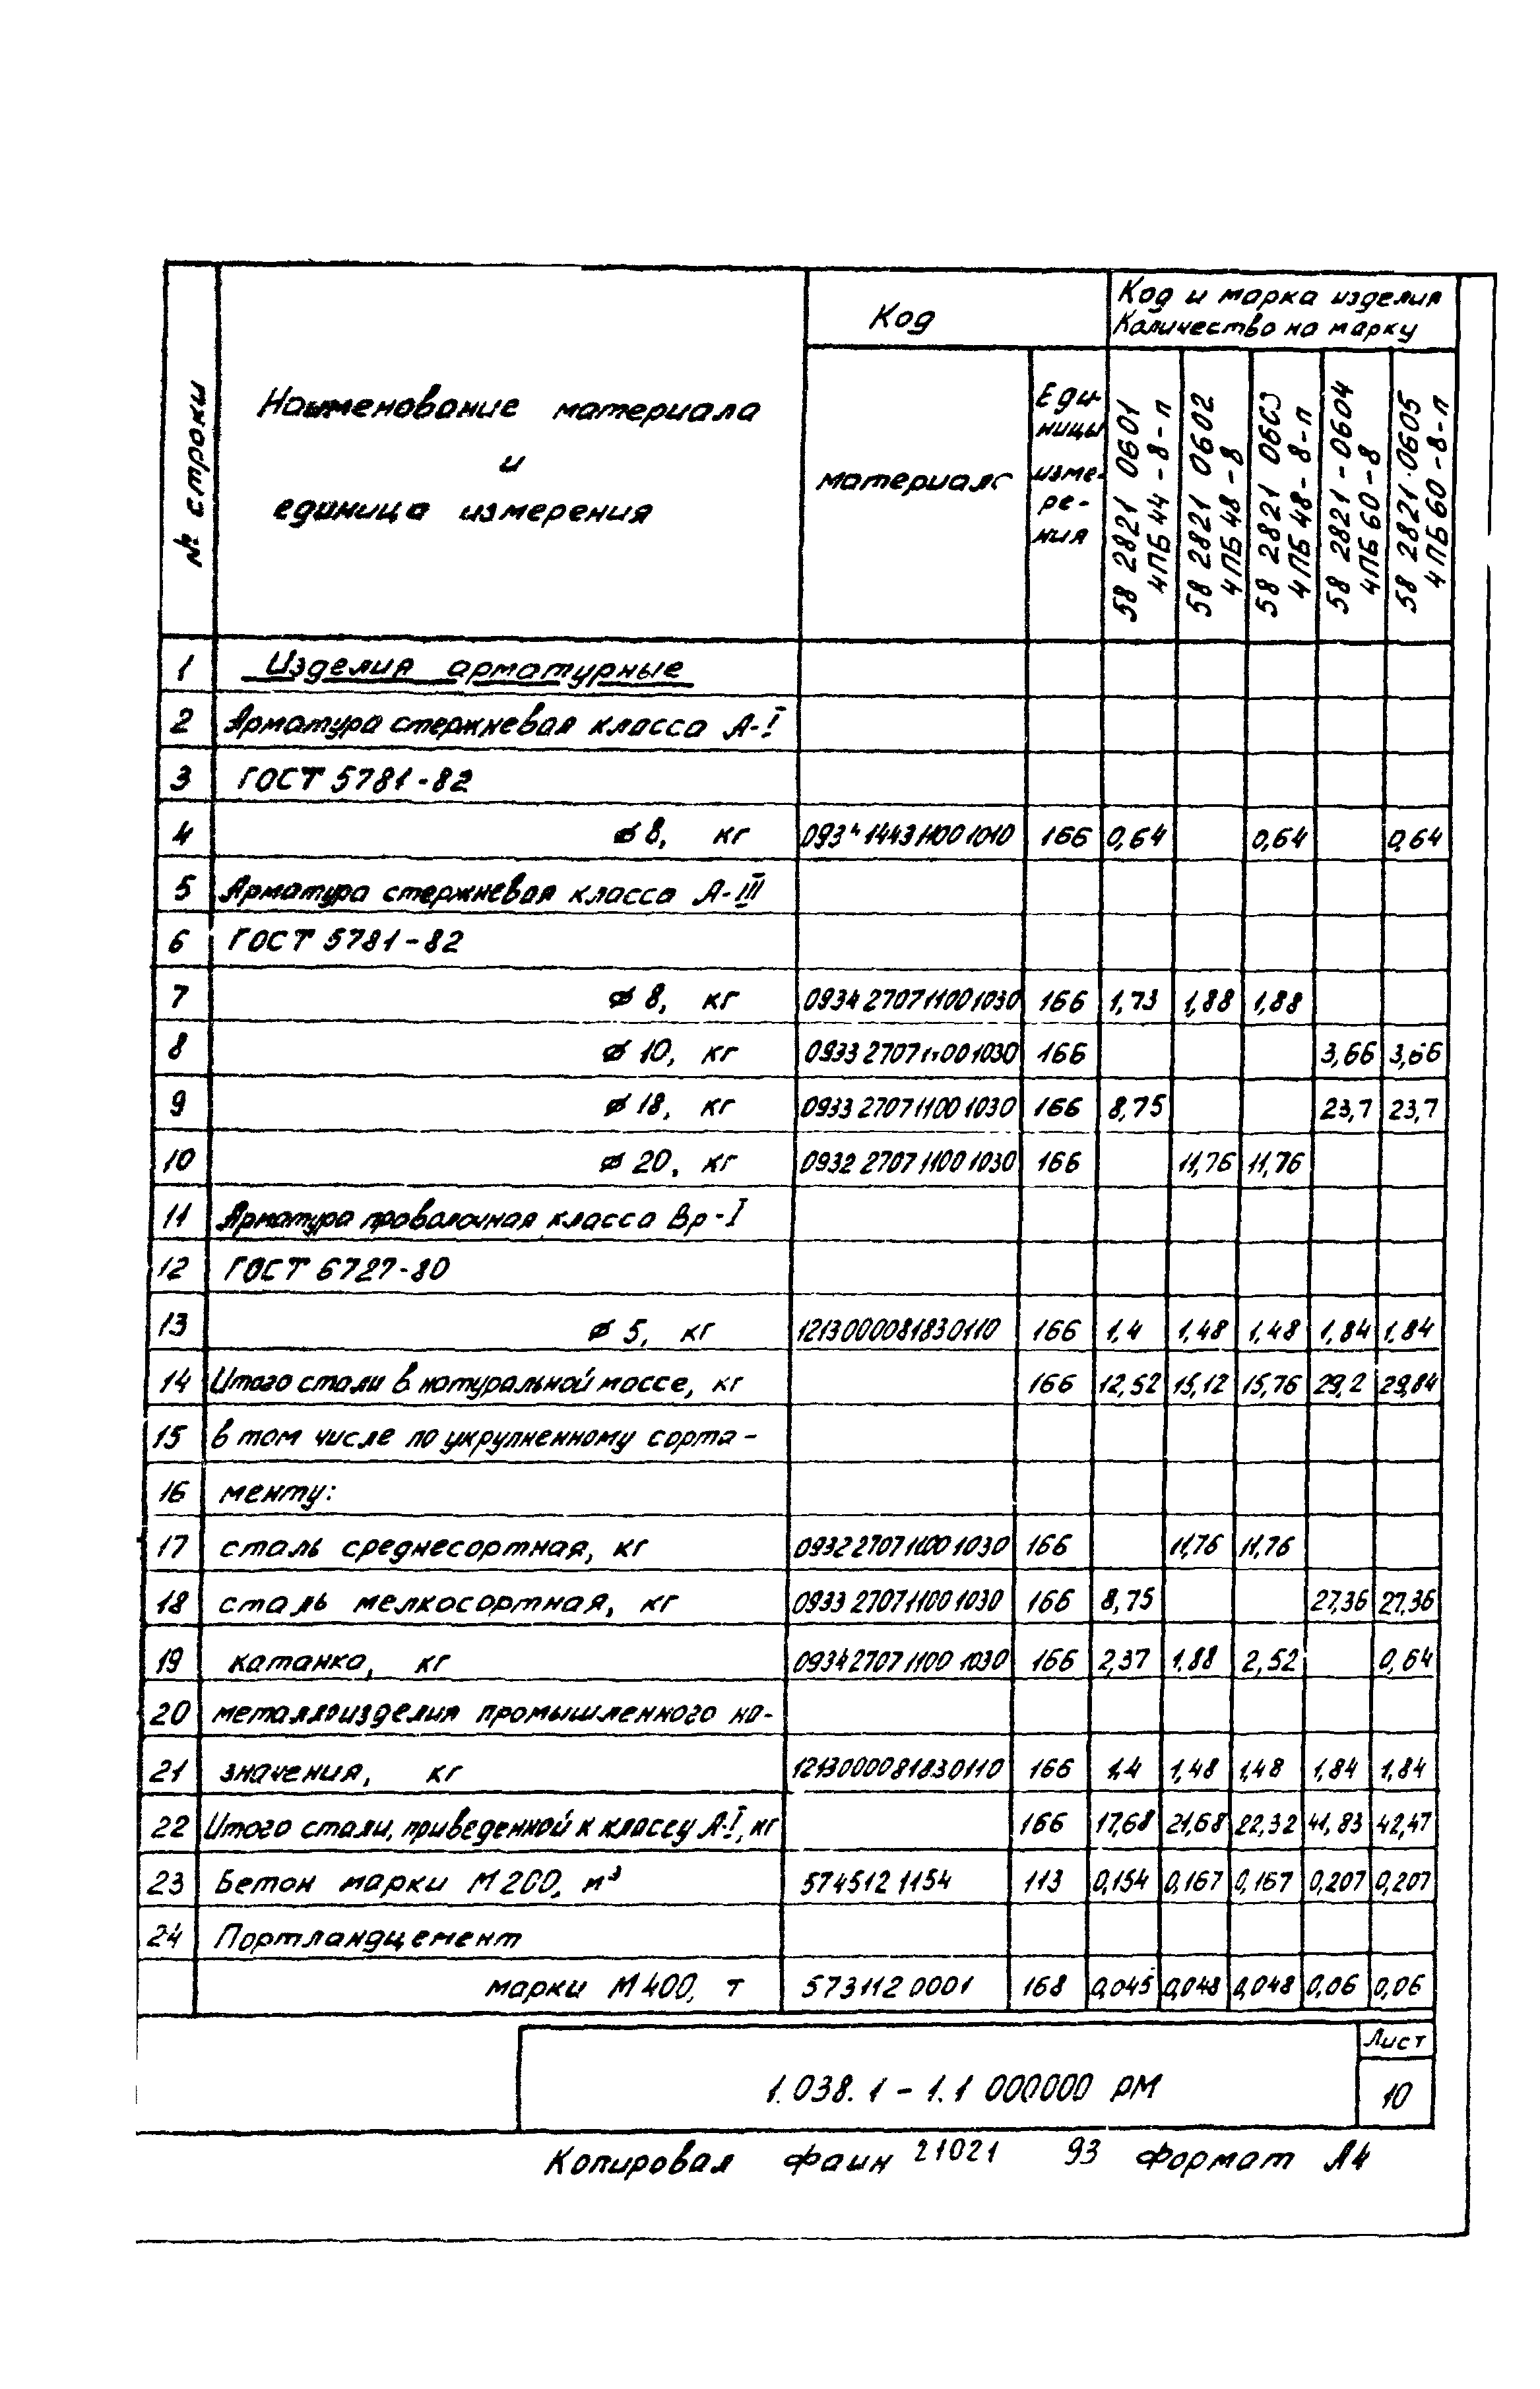 № строки
Наименование материала
и
единица измерения
Код
материала
Еди-
ницы
изме-
ре-
ния
Код и марка изделия
Количество на марку
58 2821 0601
4ПБ44-8-п
58 2821 0602
4ПБ48-8
58 2821 0603
4ПБ48-8-п
58 2821-0604
4ПБ60-8
58 2821·0605
4ПБ60-8-п
1 Изделия арматурные
2 Арматура стержневая класса А-I
3 ГОСТ 5781-82
4 ⌀8, кг 0934 1443 1100 1010 166 0,64 0,64 0,64
5 Арматура стержневая класса А-III
6 ГОСТ 5781-82
7 ⌀ 8, кг 0934 2707 1100 1030 166 1,73 1,88 1,88
8 ⌀ 10, кг 0933 2707 1100 1030 166 3,66 3,66
9 ⌀ 18, кг 0933 2707 1100 1030 166 8,75 23,7 23,7
10 ⌀ 20, кг 0932 2707 1100 1030 166 11,76 11,76
11 Арматура проволочная класса Вр-I
12 ГОСТ 6727-80
13 ⌀ 5, кг 1213000081830110 166 1,4 1,48 1,48 1,84 1,84
14 Итого стали в натуральной массе, кг 166 12,52 15,12 15,76 29,2 29,84
15 в том числе по укрупненному сорта-
16 менту:
17 сталь среднесортная, кг 0932 2707 1100 1030 166 11,76 11,76
18 сталь мелкосортная, кг 0933 2707 1100 1030 166 8,75 27,36 27,36
19 катанка, кг 0934 2707 1100 1030 166 2,37 1,88 2,52 0,64
20 металлоизделия промышленного на-
21 значения, кг 1213000081830110 166 1,4 1,48 1,48 1,84 1,84
22 Итого стали, приведенной к классу А-I, кг 166 17,68 21,68 22,32 41,83 42,47
23 Бетон марки М200, м³ 574512 1154 113 0,154 0,167 0,167 0,207 0,207
24 Портландцемент
марки М400, т 573112 0001 168 0,045 0,048 0,048 0,06 0,06
1.038.1-1.1 000000 РМ
Лист
10
Копировал Фаин 21021 93 Формат А4